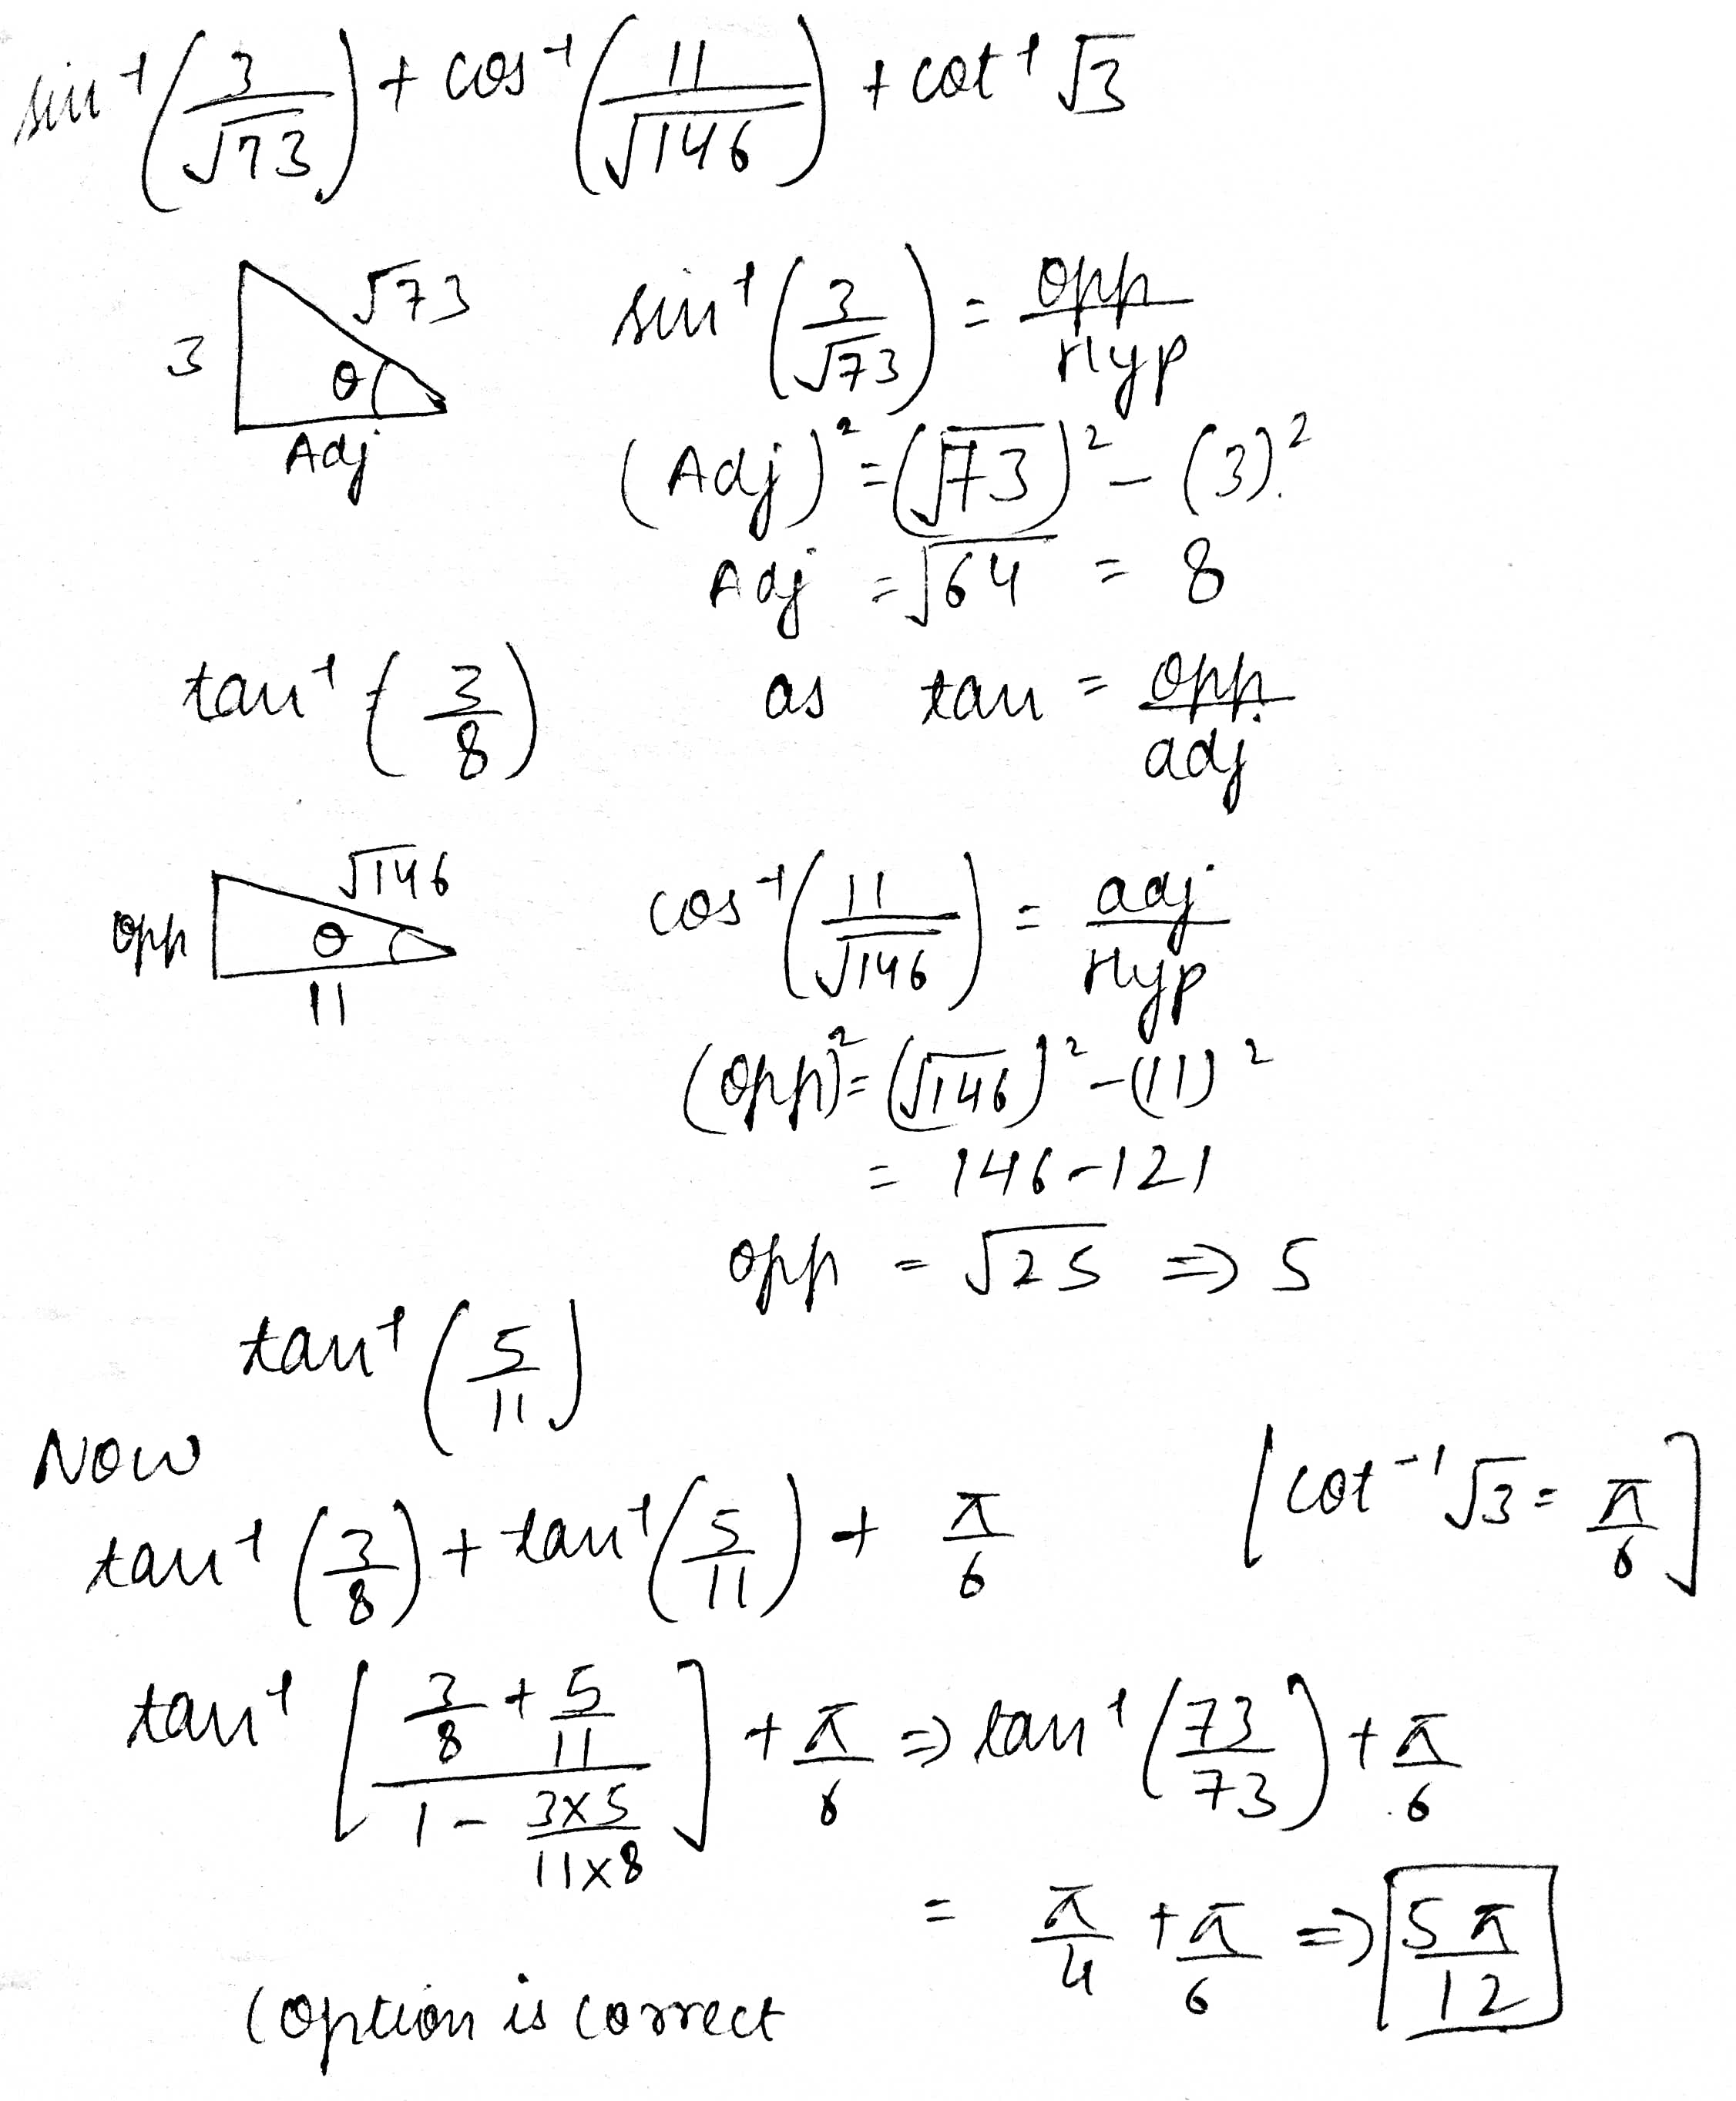 sin⁻¹(3/√73) + cos⁻¹(11/√146) + cot⁻¹ √3
√73
3
θ
Adj
sin⁻¹(3/√73) = opp/Hyp
(Adj)² = (√73)² − (3)²
Adj = √64 = 8
tan⁻¹(3/8) as tan = opp/adj
√146
opp
θ
11
cos⁻¹(11/√146) = adj/Hyp
(opp)² = (√146)² − (11)²
= 146 − 121
opp = √25 ⇒ 5
tan⁻¹(5/11)
Now
tan⁻¹(3/8) + tan⁻¹(5/11) + π/6 [cot⁻¹ √3 = π/6]
tan⁻¹[(3/8 + 5/11)/(1 − (3×5)/(11×8))] + π/6 ⇒ tan⁻¹(73/73) + π/6
= π/4 + π/6 ⇒ 5π/12
(option is correct